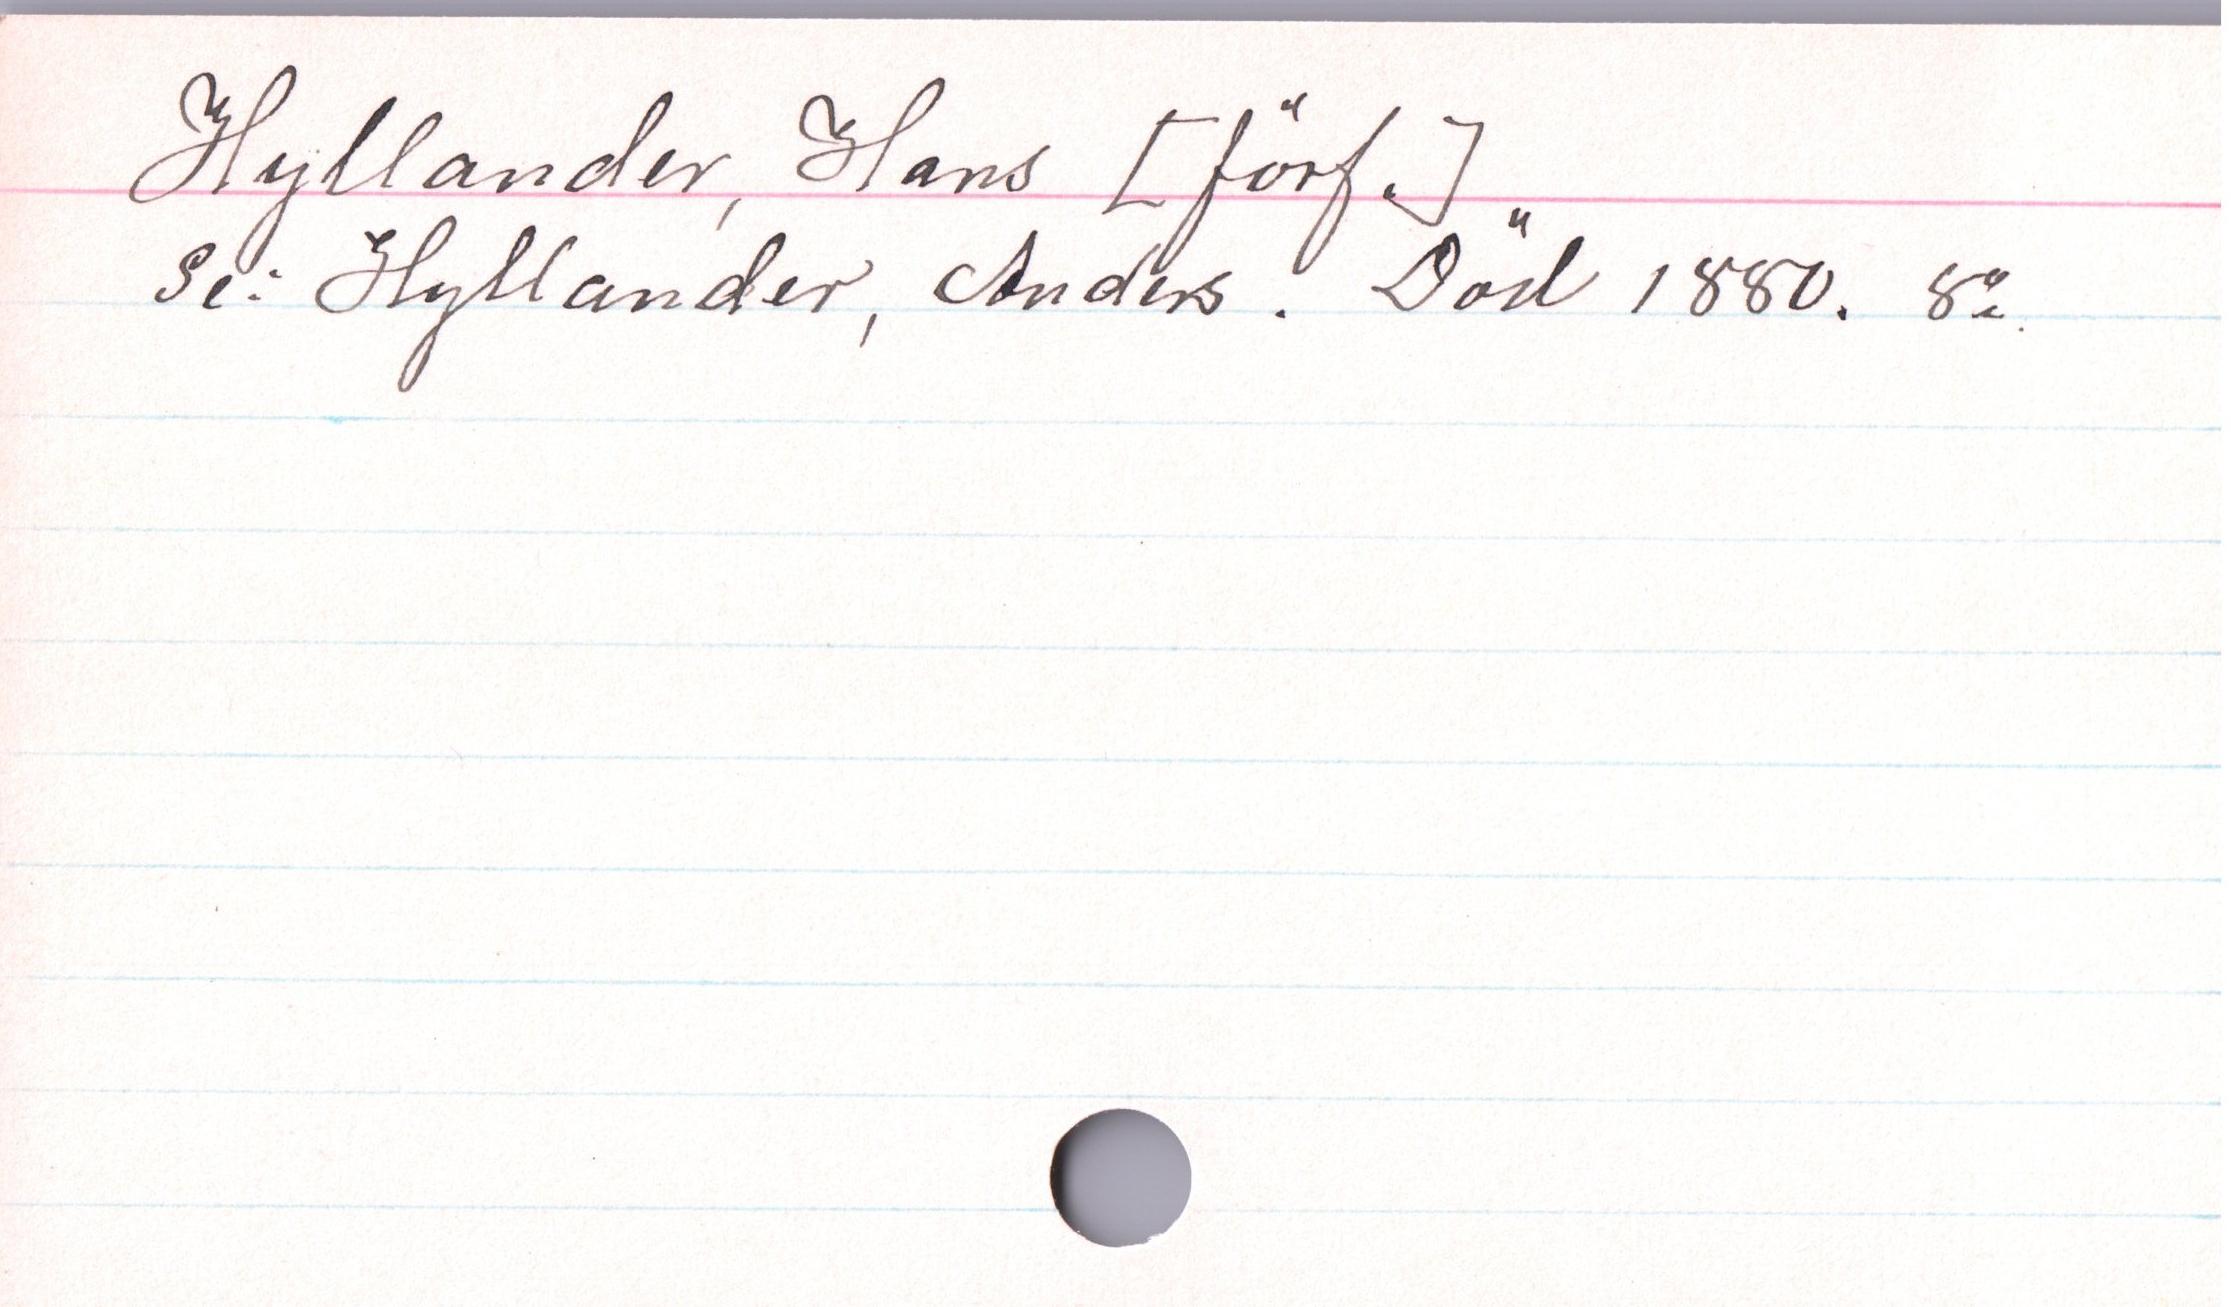 Hyllander, Hans [förf.]
Se: Hyllander, Anders. Död 1880. 8o.